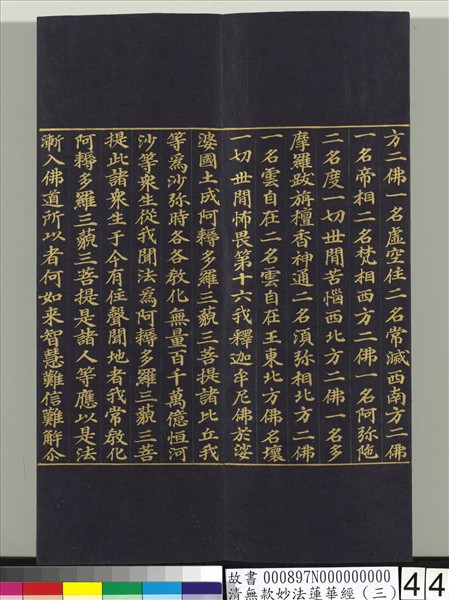 方二佛一名虛空住二名常滅西南方二佛
一名帝相二名梵相西方二佛一名阿弥陁
二名度一切世間苦惱西北方二佛一名多
摩羅跋旃檀香神通二名湏弥相北方二佛
一名雲自在二名雲自在王東北方佛名壞
一切世間怖畏第十六我釋迦牟尼佛於娑
婆國土成阿耨多羅三藐三菩提諸比丘我
等為沙弥時各各教化無量百千萬億恒河
沙等衆生從我聞法為阿耨多羅三藐三菩
提此諸衆生于今有住聲聞地者我常教化
阿耨多羅三藐三菩提是諸人等應以是法
漸入佛道所以者何如来智慧難信難解尒
故書 000897N000000000
清無款妙法蓮華經（三）
44
4